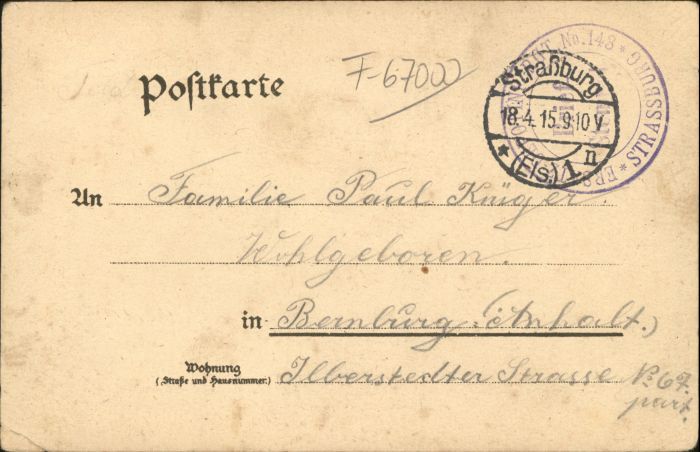 Postkarte
F-67000
No. 143 * STRASSBURG *
Straßburg
18.4.15.9-10V
* (Els.) 1 n
An Familie Paul Krüger.
Wohlgeboren.
in Bernburg (Anhalt.)
Wohnung
(Straße und Hausnummer) Ilberstedter Strasse No 67.
part.